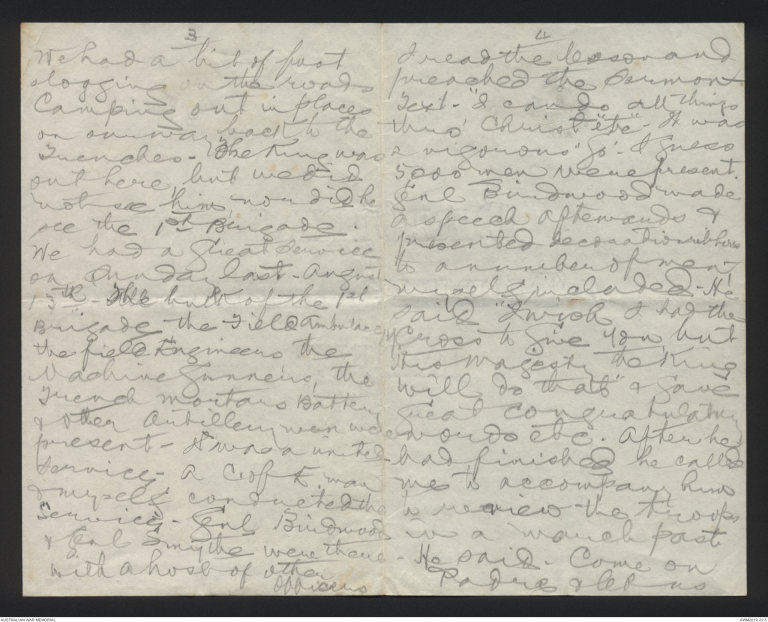 3
We had a bit of foot
slogging on the roads
Camping out in places
on our way back to the
Trenches - The King was
out here, but we did
not see him, nor did he
see the 1st Brigade.
We had a great service
on Sunday last - August
13th - The bulk of the 1st
Brigade the Field Ambulance
the field Engineers the
Machine Gunners, the
Trench mortars Battery
& other Artillery men were
present - It was a united
Service - a C of E. man
& myself conducted the
Service - Genl Birdwood
& Genl Smythe were there
with a host of other
Officers
4
I read the lesson and
preached the Sermon
Text - "I can do all things
thro' Christ" etc - It was
a vigorous "go". I guess
5000 men were present.
Genl Birdwood made
a speech afterwards &
presented decoration ribbons
to a number of men
myself included - He
said "I wish I had the
Cross to give you but
His Majesty the King
will do that" & gave
great congratulatory
words etc. After he
had finished he called
me to accompany him
to review the troops
in a march past
- He said - Come on
Padre & let us
AUSTRALIAN WAR MEMORIAL